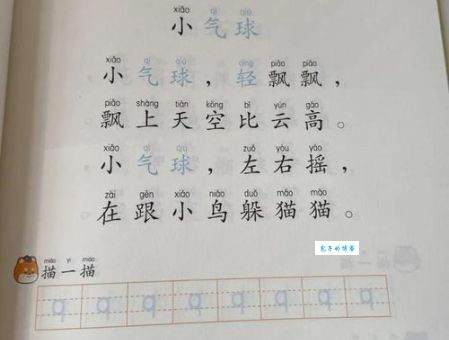 xiǎo qì qiú
小气球
xiǎo qì qiú qīng piāo piāo
小气球，轻飘飘，
piāo shàng tiān kōng bǐ yún gāo
飘上天空比云高。
xiǎo qì qiú zuǒ yòu yáo
小气球，左右摇，
zài gēn xiǎo niǎo duǒ māo māo
在跟小鸟躲猫猫。
miáo yì miáo
描一描
q q q q q q q q